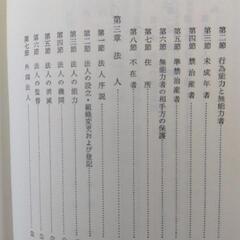 第二節 行為能力と無能力者
第三節 未成年者
第四節 禁治産者
第五節 準禁治産者
第六節 無能力者の相手方の保護
第七節 住所
第八節 不在者
第三章 法人
第一節 法人序説
第二節 法人の設立・組織変更および登記
第三節 法人の能力
第四節 法人の機関
第五節 法人の消滅
第六節 法人の監督
第七節 外国法人